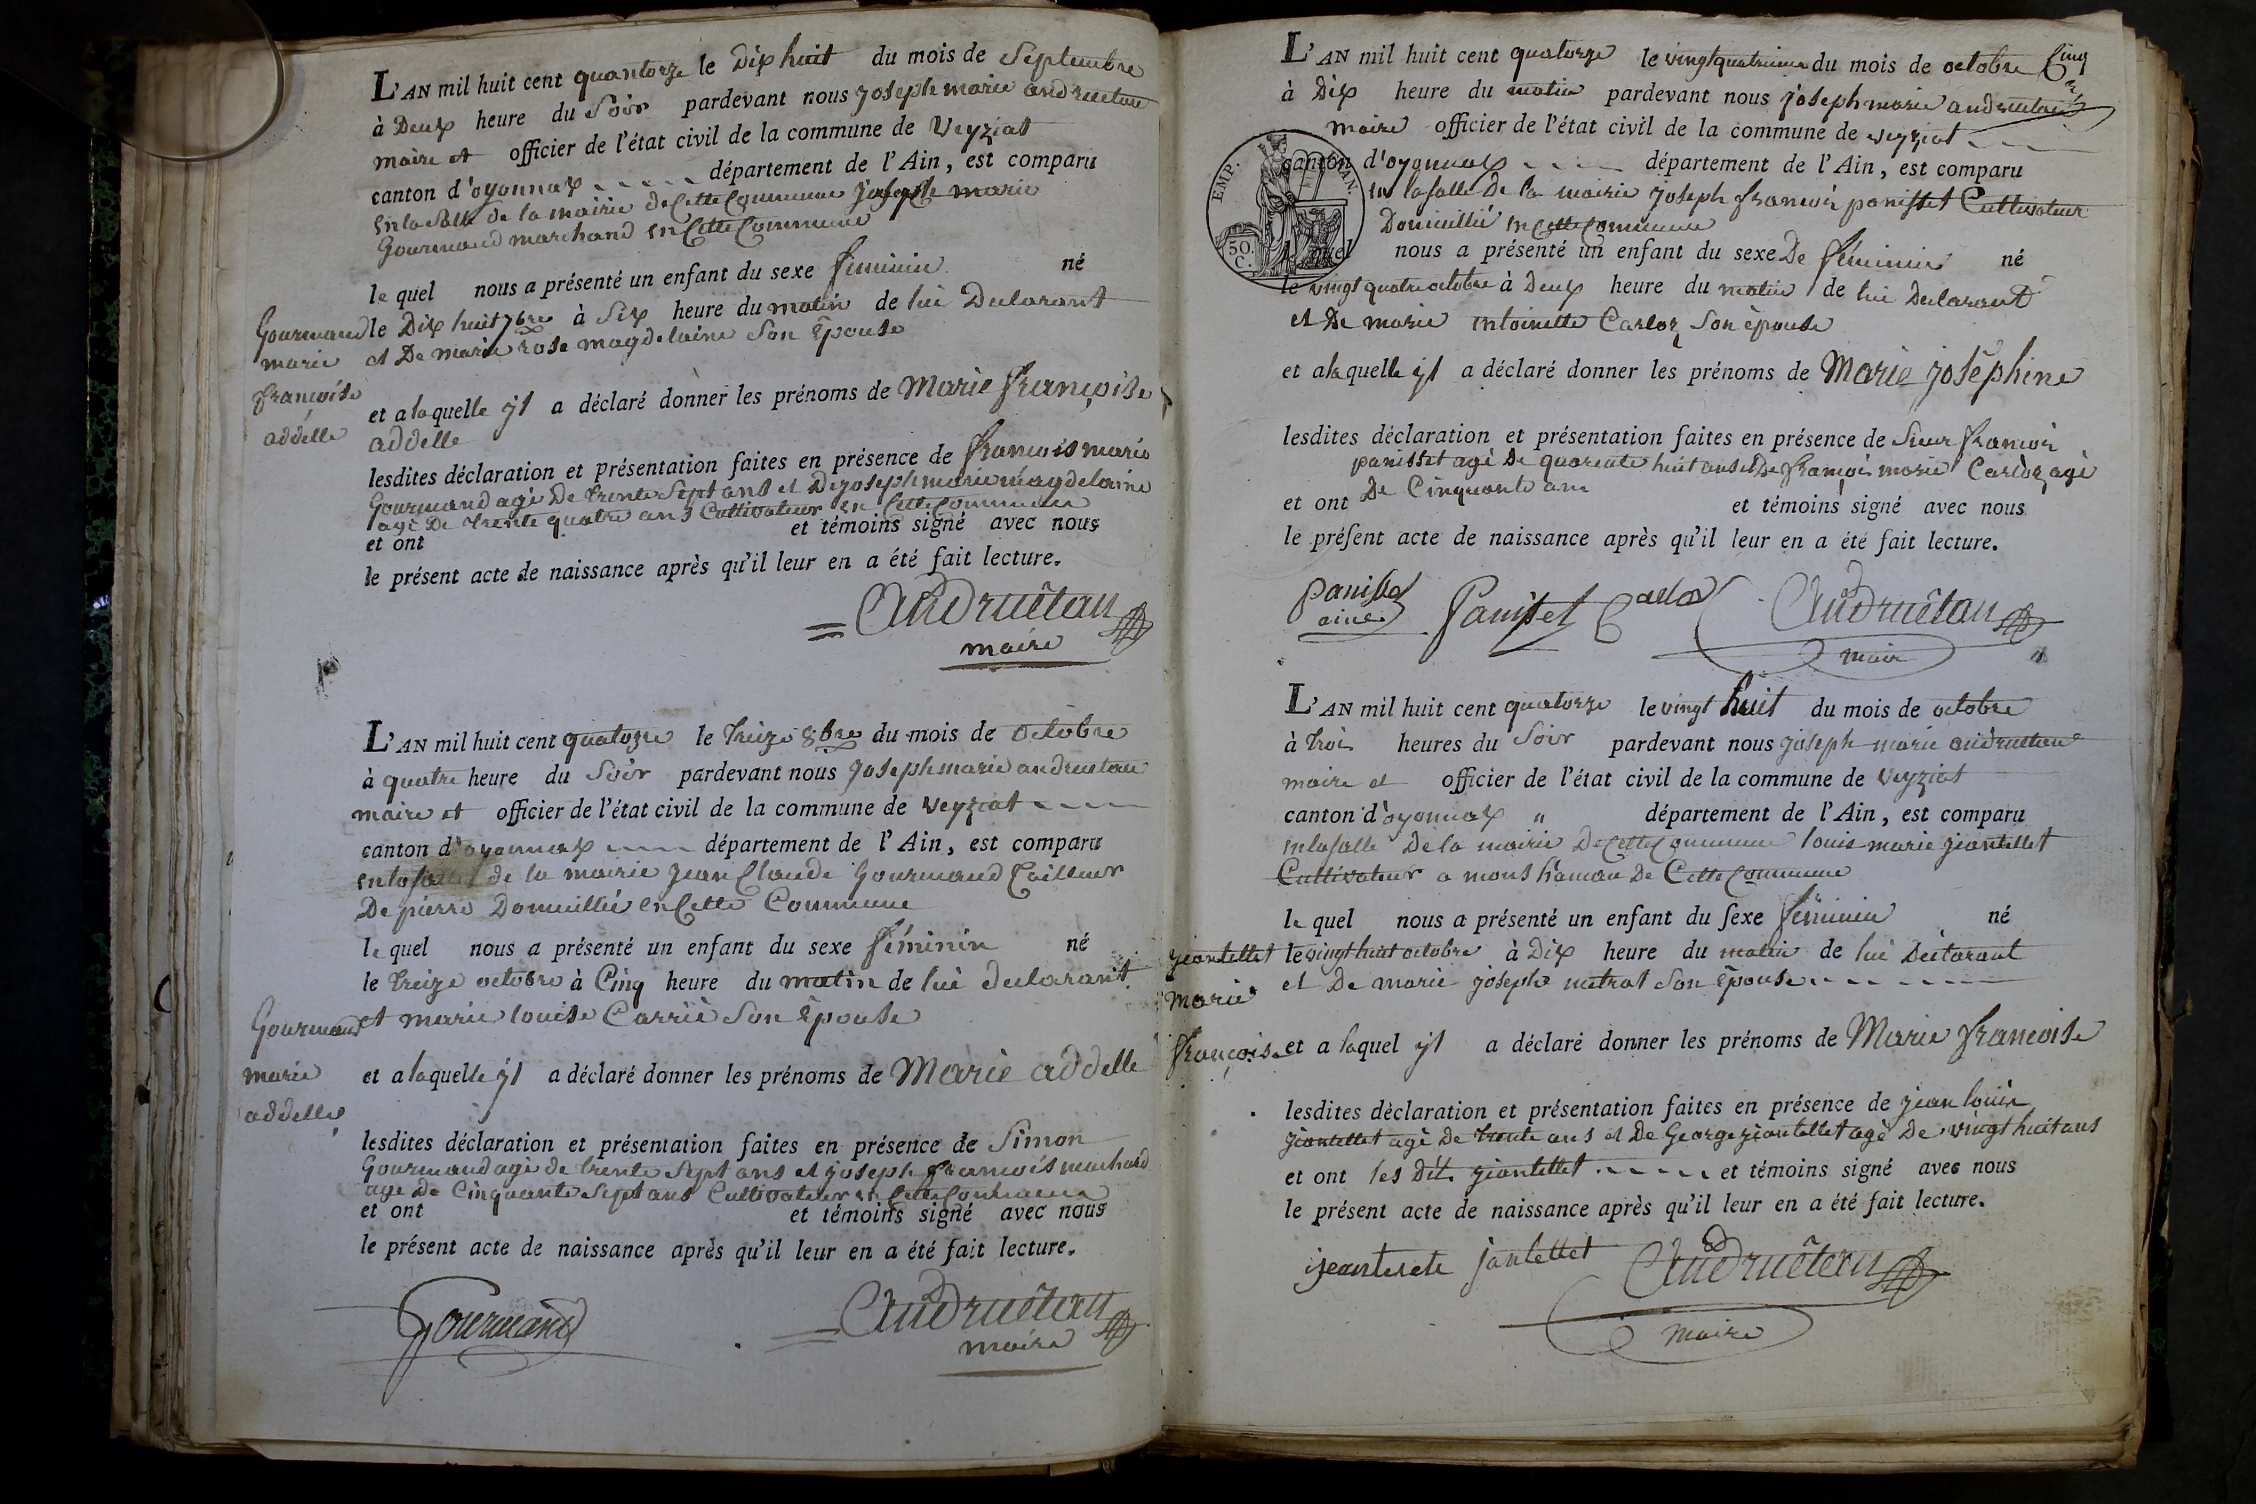 L'AN mil huit cent quantorze le Dix huit du mois de Septembre
à Deux heure du Soir pardevant nous joseph marie andruetan
maire et officier de l'état civil de la commune de Veyziat
canton d'oyonnax département de l'Ain, est comparu
en la Salle de la mairie de Cette Commune joseph marie
Gourmand marchand en Cette Commune
le quel nous a présenté un enfant du sexe féminin né
le Dix huit 7bre à Six heure du matin de lui Declarant
et De marie rose magdelaine Son Épouse
Gourmand
marie
françoise
addelle
et a laquelle yl a déclaré donner les prénoms de Marie françoise
addelle
lesdites déclaration et présentation faites en présence de francois marie
Gourmand agé De trente Sept ans et De joseph marie magdelaine
agé De trente quatre ans Cultivateur en Cette Commune
et ont et témoins signé avec nous
le présent acte de naissance après qu'il leur en a été fait lecture.
Andruêtan
maire
L'AN mil huit cent quatozre le treize 8bre du mois de octobre
à quatre heure du Soir pardevant nous joseph marie andruetan
maire et officier de l'état civil de la commune de Veyziat
canton d'oyonnax département de l'Ain, est comparu
en la salle de la mairie jean Claude Gourmand tailleur
De pierre Domicillié en Cette Commune
le quel nous a présenté un enfant du sexe féminin né
le treize octobre à Cinq heure du matin de lui declarant
et marie louise Carrié Son Épouse
Gourmand
marie
addelle
et a laquelle yl a déclaré donner les prénoms de Marie addelle
lesdites déclaration et présentation faites en présence de Simon
Gourmand agé de trente Sept ans et joseph francois marchand
agé de Cinquante Sept ans Cultivateur en Cette Commune
et ont et témoins signé avec nous
le présent acte de naissance après qu'il leur en a été fait lecture.
Gourmand Andruêtan
maire
L'AN mil huit cent quatorze le vingt quatrieme du mois de octobre
à Dix heure du matin pardevant nous joseph marie andruetan
maire officier de l'état civil de la commune de veyziat
canton d'oyonnax département de l'Ain, est comparu
en la salle De la mairie joseph francois panisset Cultivateur
Domicillié en Cette Commune
EMP. FRAN.
50 C.
le quel nous a présenté un enfant du sexe De féminin né
le vingt quatre octobre à Deux heure du matin de lui Declarant
et De marie entoinette Carloz Son épouse
et a la quelle yl a déclaré donner les prénoms de Marie joséphine
lesdites déclaration et présentation faites en présence de Sieur francois
panisset agé De quarente huit ans et De françois marie Carloz agé
De Cinquante ans
et ont et témoins signé avec nous
le présent acte de naissance après qu'il leur en a été fait lecture.
panisset
ainé Panisset Carloz Andruêtan
maire
L'AN mil huit cent quatorze le vingt huit du mois de octobre
à trois heures du Soir pardevant nous joseph marie andruetan
maire et officier de l'état civil de la commune de Veyziat
canton d'oyonnax " département de l'Ain, est comparu
en la salle De la mairie De Cette Commune louis marie jeantellet
Cultivateur a mons hameau De Cette Commune
le quel nous a présenté un enfant du sexe féminin né
le vingt huit octobre à Dix heure du matin de lui Déclarant
et De marie josephe mitrat Son Épouse
jeantellet
marie
françoise
et a laquel yl a déclaré donner les prénoms de Marie francoise
lesdites déclaration et présentation faites en présence de jean louis
jeantellet agé De trente ans et De George jeantellet agé De vingt huit ans
et ont les Dit. jeantellet et témoins signé avec nous
le présent acte de naissance après qu'il leur en a été fait lecture.
jantellet Andruêtan
maire